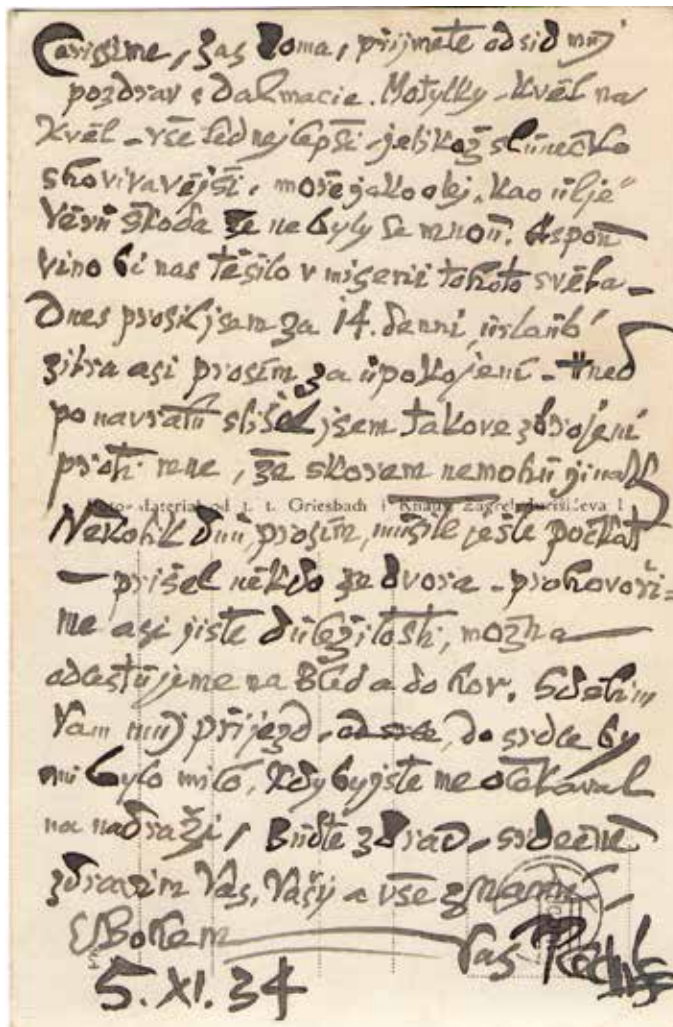 Carissime, zas doma, přijmete odsid můj
pozdrav s dalmacie. Motylky – květ na
květ – vše ted nejlepši – jelikož slunečko
shovivavějši, moře jako olej, „kao ulje"
Věru škoda že ne byly se mnou. Aspoň
vino bi nas těšilo v miserii tohoto světa –
Dnes prosil jsem za 14. denni
asi prosím za upokojení – Hned
po navratu slišel jsem takove zbrojeni
proti mne, že skorem nemohu jinak
Foto-Material od t. t. Griesbach i Knaus Zagreb Jurišićeva 1
Nekolik dnu, prosím, mužete ješte počkat
– prišel někdo ze dvora – prohovoři=
me asi jiste důležitosti, možna
odcestujeme na Bled a do hor. Sdelim
Vam můj příjezd, od srdce, do srdce by
mi bylo milo, kdy byjste me očekaval
na nadraži, Budte zdrav, srdečně
zdravim Vas, Vašy a vše znamé
S Bohem Vas
5. XI. 34